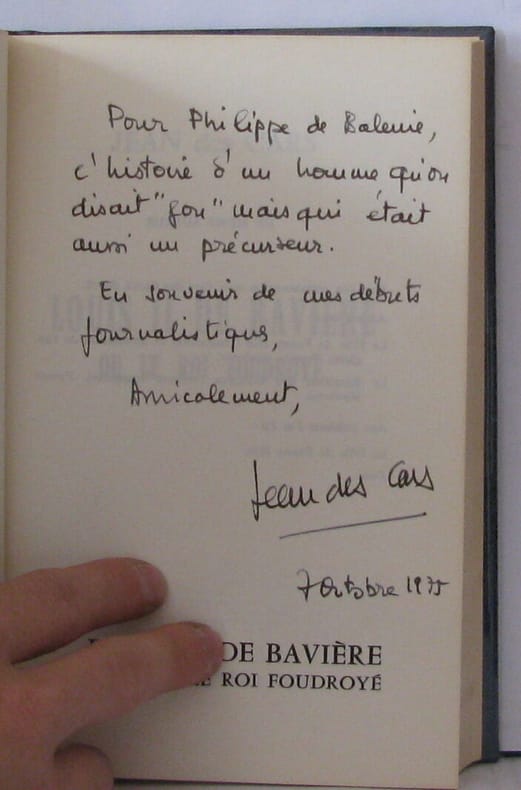 Pour Philippe de Baleine,
c'histoire d'un homme qu'on
disait "fou" mais qui était
aussi un précurseur.
En souvenir de mes débuts
journalistiques,
Amicalement,
Jean des Cars
7 Octobre 1975
DE BAVIÈRE
ROI FOUDROYÉ